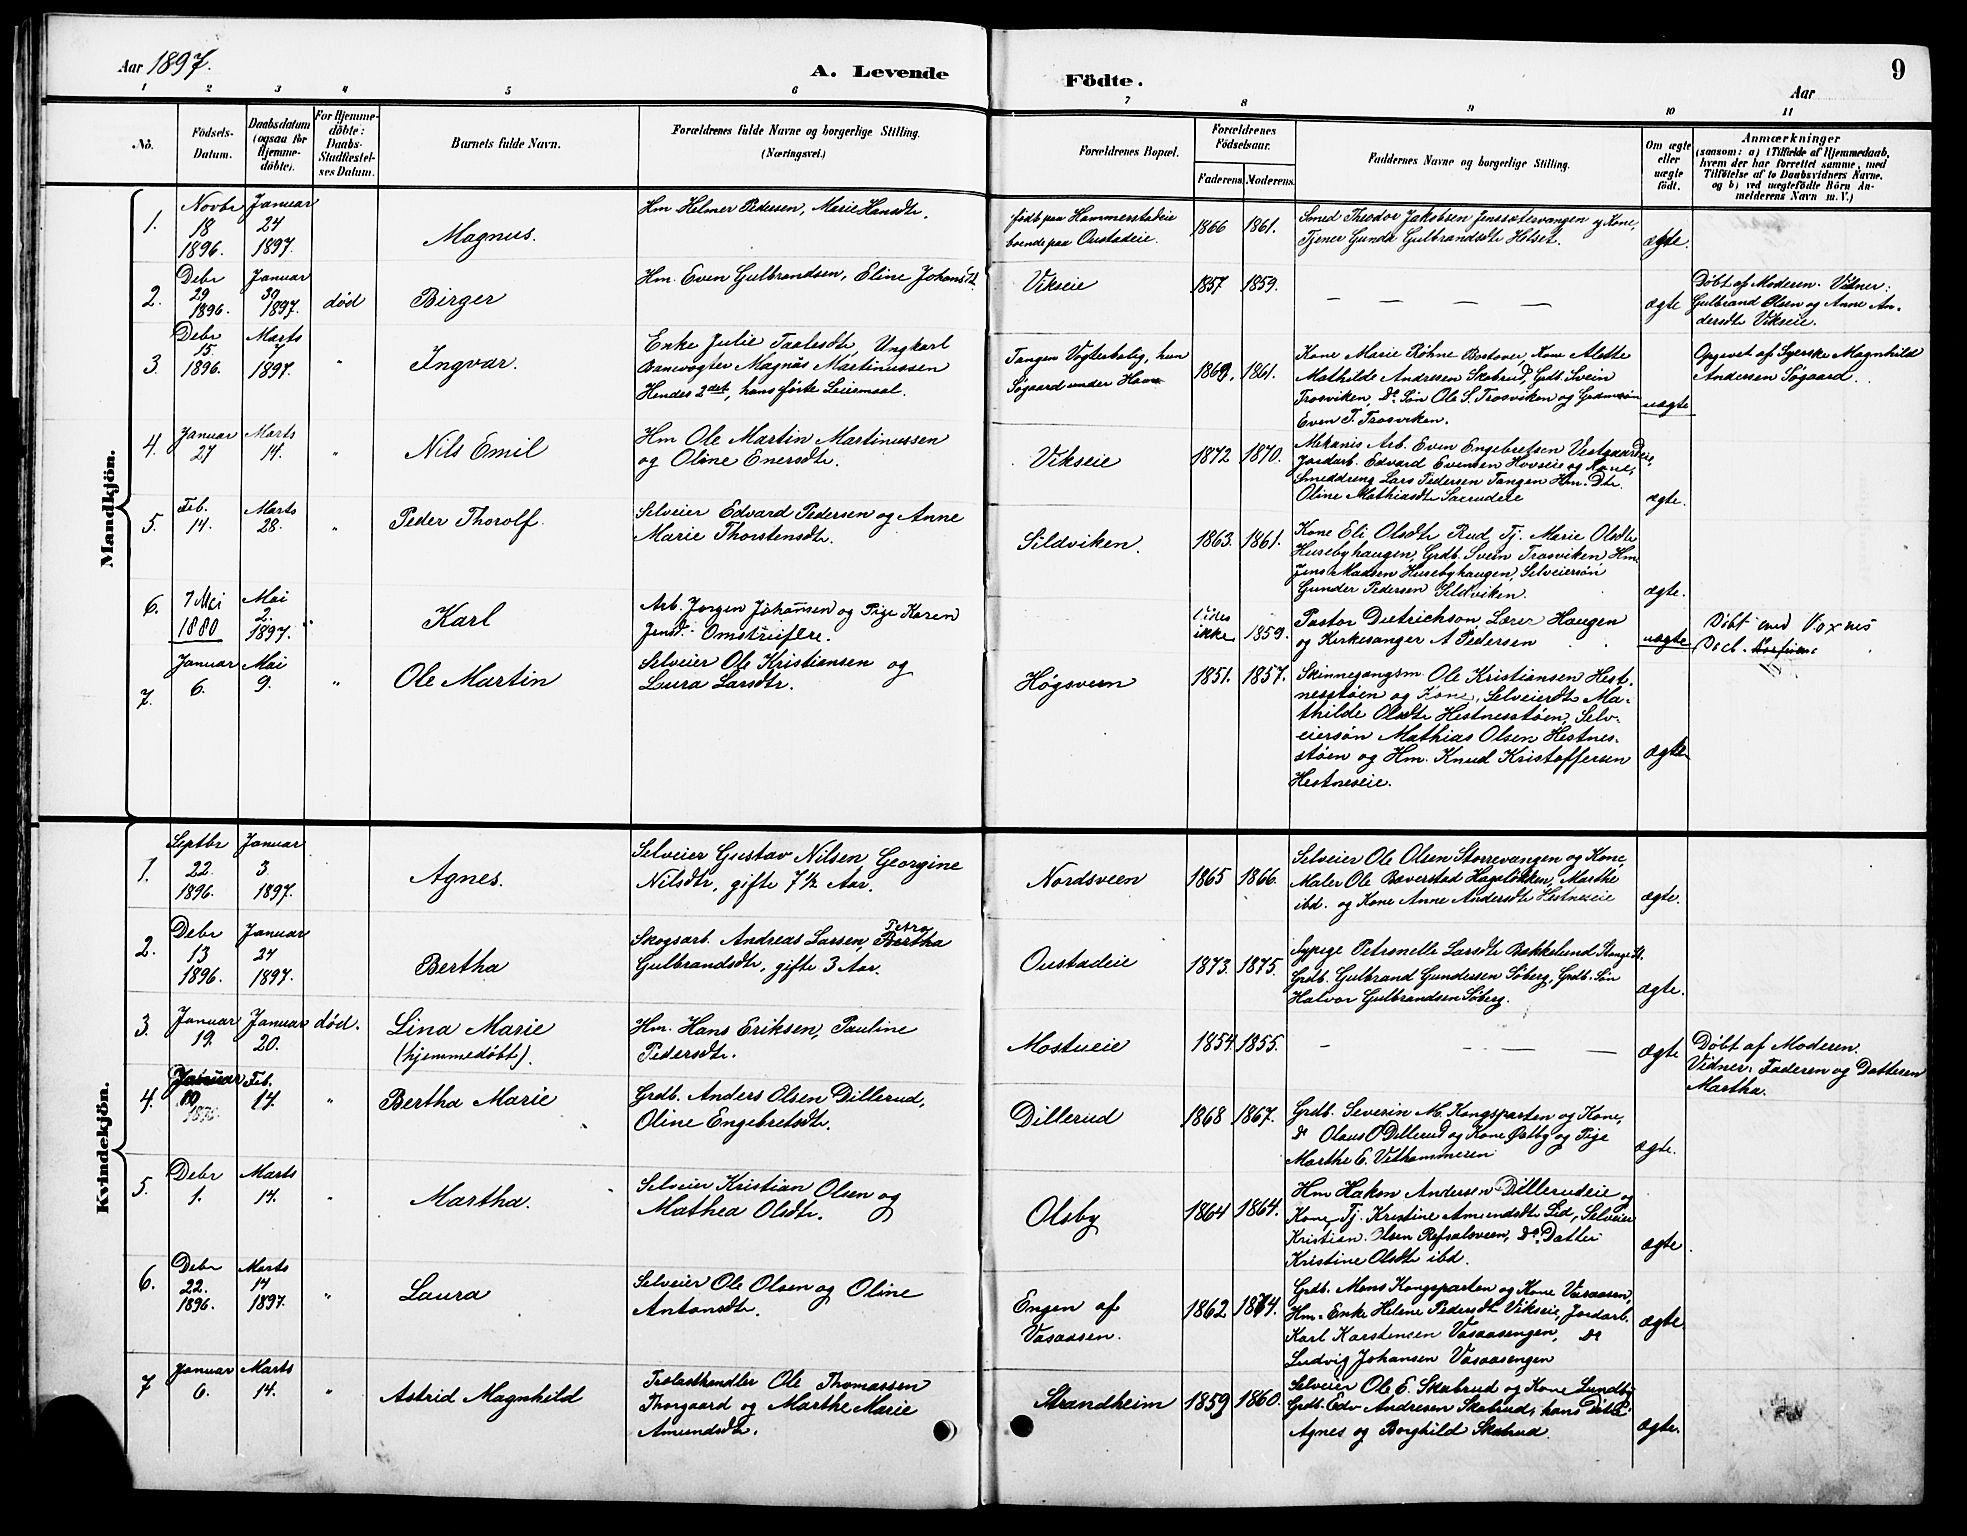 Aar 1897.
A. Levende Födte.
9
Aar
1 2 3 4 5 6 7 8 9 10 11
No.
Födsels-Datum.
Daabsdatum (ogsaa for Hjemme-döbte).
For Hjemme-döbte: Daabs-Stadfæstel-ses Datum.
Barnets fulde Navn.
Forældrenes fulde Navne og borgerlige Stilling.
(Næringsvei.)
Forældrenes Bopæl.
Forældrenes Födselsaar.
Faderens. Moderens.
Faddernes Navne og borgerlige Stilling.
Om ægte eller uægte födt.
Anmærkninger
(saasom: a) i Tilfælde af Hjemmedaab,
hvem der har forrettet samme, med
Tilföielse af to Daabsvidners Navne.
og b) ved uægtefödte Börn An-
melderens Navn m. V.)
Mandkjön.
1. Novbr 18 1896. Januar 24 1897.
Magnus.
Hm Helmer Pedersen, Marie Hansdtr.
født paa Hammerstadeie
boende paa Oustadeie.
1866 1861.
Smed Theodor Jakobsen Jenssætervangen og Kone,
Tjener Gunda Gulbrandsdtr Helset.
ægte.
2. Debr 29 1896. Januar 30 1897. død
Birger
Hm. Even Gulbrandsen, Eline Johansdt
Vikseie
1857 1859.
— — — —
ægte
Døbt af Moderen. Vidner:
Gulbrand Olsen og Anne An-
dersdtr Vikseie.
3. Debr 15. 1896. Marts 7 1897. "
Ingvar.
Enke Julie Taalesdtr, Ungkarl
Banevogter Magnus Martinussen
Hendes 2det, hans første Leiermaal.
Tangen Vogterbolig, hun
Søgaard under Horne
1869, 1861.
Kone Marie Røhne Bostover, Kone Alette
Mathilde Andresen Skabrud, Grdb. Svein
Trosviken, Do Søn Ole S. Trosviken og Grdmsøn
Even T. Trosviken.
uægte
Opgivet af Syerske Magnhild
Andersen Søgaard.
4. Januar 27 Marts 14. "
Nils Emil
Hm Ole Martin Martinussen
og Oline Enersdtr.
Vikseie
1872 1870.
Mekanis Arb. Even Engebretsen Vestgaardeie,
Jordarb. Edvard Evensen Hovseie og Kone,
Smeddreng Lars Pedersen Tangen Hm. Dtr.
Oline Mathiasdtr Saerudeie
ægte.
5. Feb. 14. Marts 28. "
Peder Thorolf.
Selveier Edvard Pedersen og Anne
Marie Thorstensdtr.
Sildviken.
1863. 1861.
Kone Eli Olsdtr Rud, Tj. Marie Olsdtr
Husebyhaugen, Grdb. Svein Trosviken, Hm.
Jens Madsen Husebyhaugen, Selveiersøn
Gunder Pedersen Sildviken.
ægte.
6. 7 Mai 1880 Mai 2. 1897. "
Karl
Arb. Jørgen Johansen og Pige Karen
Jensd. Omstreifere.
Vides ikke 1859.
Pastor Dietrichson, Lærer Haugen
og Kirkesanger A Pedersen
uægte
Døbt ved Voxnes
Dåd.
7. Januar 6. Mai 9. "
Ole Martin
Selveier Ole Kristiansen og
Laura Larsdtr.
Høgsveen
1851. 1857.
Skinnegangsm. Ole Kristiansen Hest-
nesstøen og Kone, Selveierdtr Ma-
thilde Olsdtr Hestnesstøen, Selv-
eiersøn Mathias Olsen Hestnes-
støen og Hm. Knud Kristoffersen
Hestneseie.
ægte
Kvindekjön.
1. Septbr 22. 1896 Januar 3. 1897
Agnes.
Selveier Gustav Nilsen Georgine
Nilsdtr, gifte 7½ Aar.
Nordsveen
1865 1866.
Selveier Ole Olsen Storrevangen og Kone,
Maler Ole Bæverstad Hageløkken, Marthe
ibd. og Kone Anne Andersdtr Hestneseie
ægte.
2. Debr 13 1896. Januar 24 1897.
Bertha
Petra
Skogsarb. Andreas Larsen, Bertha
Gulbrandsdtr, gifte 3 Aar.
Oustadeie
1873. 1875.
Sypige Petronelle Larsdtr Bakkelund Stange St.
Grdb. Gulbrand Gundersen Søberg, Grdb. Søn
Halvor Gulbrandsen Søberg.
ægte.
3. Januar 19. Januar 20. død.
Lina Marie
(hjemmedøbt).
Hm. Hans Eriksen, Pauline
Pedersdtr.
Mostueie
1854 1855.
— — — —
ægte
Døbt af Moderen.
Vidner: Faderen og Datteren
Martha.
4. Januar 19 1896 Feb. 14. "
Bertha Marie
Grdb. Anders Olsen Dillerud,
Oline Engebretsdtr.
Dillerud
1868 1867.
Grdb. Severin M. Kongsparten og Kone,
Do Olaus O Dillerud og Kone Østby og Pige
Marthe E. Vethammeren
ægte.
5. Debr 1. Marts 14. "
Martha.
Selveier Kristian Olsen og
Mathea Olsdtr.
Olsby
1864 1864.
Hm Hakon Andersen Dillerudeie og
Kone, Tj. Kristine Amundsdtr Lid, Selveier
Kristian Olsen Refsalsveen, Do. Datter
Kristine Olsdtr ibd.
ægte
6. Debr 22. 1896. Marts 14 1897. "
Laura
Selveier Ole Olsen og Oline
Antonsdtr.
Engen af
Vasaasen.
1862 1874.
Grdb. Mons Kongsparten og Kone Vasaasen,
Hm. Enke Helene Pedersdtr Vikseie, Jordarb.
Karl Karstensen Vasaasengen, Do
Ludvig Johansen Vasaasengen
ægte.
7 Januar 6. Marts 14. "
Astrid Magnhild
Trælasthandler Ole Thomassen
Thorgaard og Marthe Marie
Amundsdtr.
Strandheim
1859 1860.
Selveier Ole E. Skabrud og Kone Lundby
Grdb. Edv Andresen Skabrud, hans
Agnes og Borghild Skabrud.
ægte.